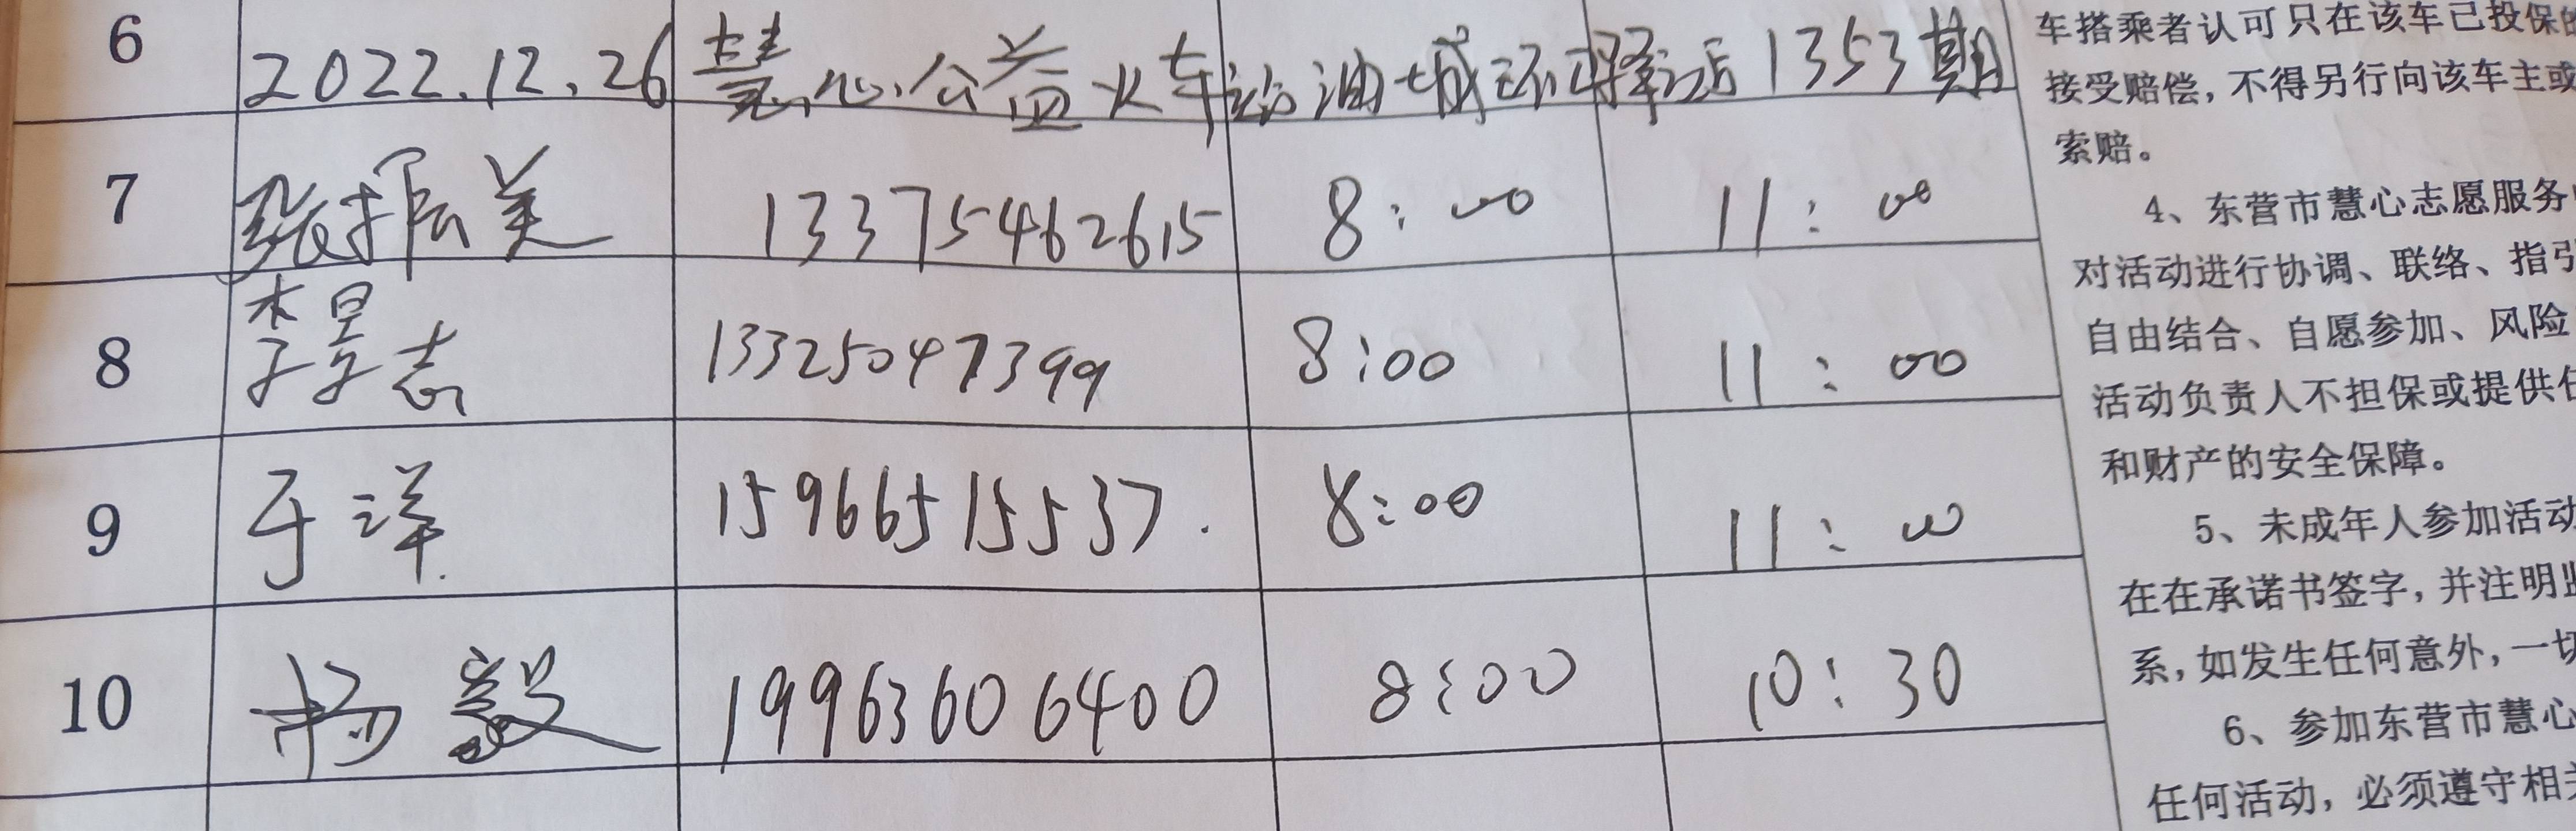 6 2022.12.26 慧心公益火车站油城环驿站 1353期
7 张振美 13375462615 8:00 11:00
8 李昱志 13325047399 8:00 11:00
9 于洋 15966515537. 8:00 11:00
10 杨毅 19963606400 8:00 10:30
车搭乘者认可只在该车已投保的
接受赔偿，不得另行向该车主或
索赔。
4、东营市慧心志愿服务中
对活动进行协调、联络、指引
自由结合、自愿参加、风险
活动负责人不担保或提供任
和财产的安全保障。
5、未成年人参加活动
在在承诺书签字，并注明监
系，如发生任何意外，一切
6、参加东营市慧心
任何活动，必须遵守相关